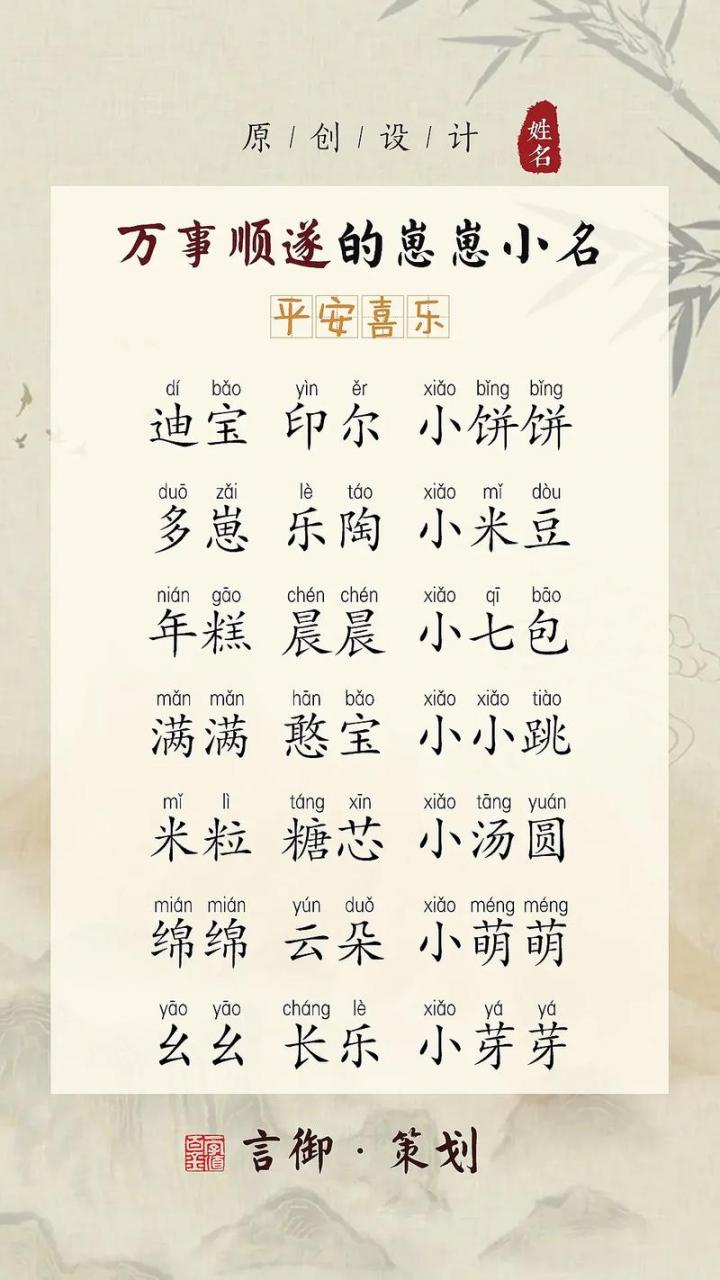 原/创/设/计 姓名
万事顺遂的崽崽小名
平安喜乐
dí bǎo yìn ěr xiǎo bǐng bǐng
迪宝 印尔 小饼饼
duō zǎi lè táo xiǎo mǐ dòu
多崽 乐陶 小米豆
nián gāo chén chén xiǎo qī bāo
年糕 晨晨 小七包
mǎn mǎn hān bǎo xiǎo xiǎo tiào
满满 憨宝 小小跳
mǐ lì táng xīn xiǎo tāng yuán
米粒 糖芯 小汤圆
mián mián yún duǒ xiǎo méng méng
绵绵 云朵 小萌萌
yāo yāo cháng lè xiǎo yá yá
幺幺 长乐 小芽芽
言御·策划